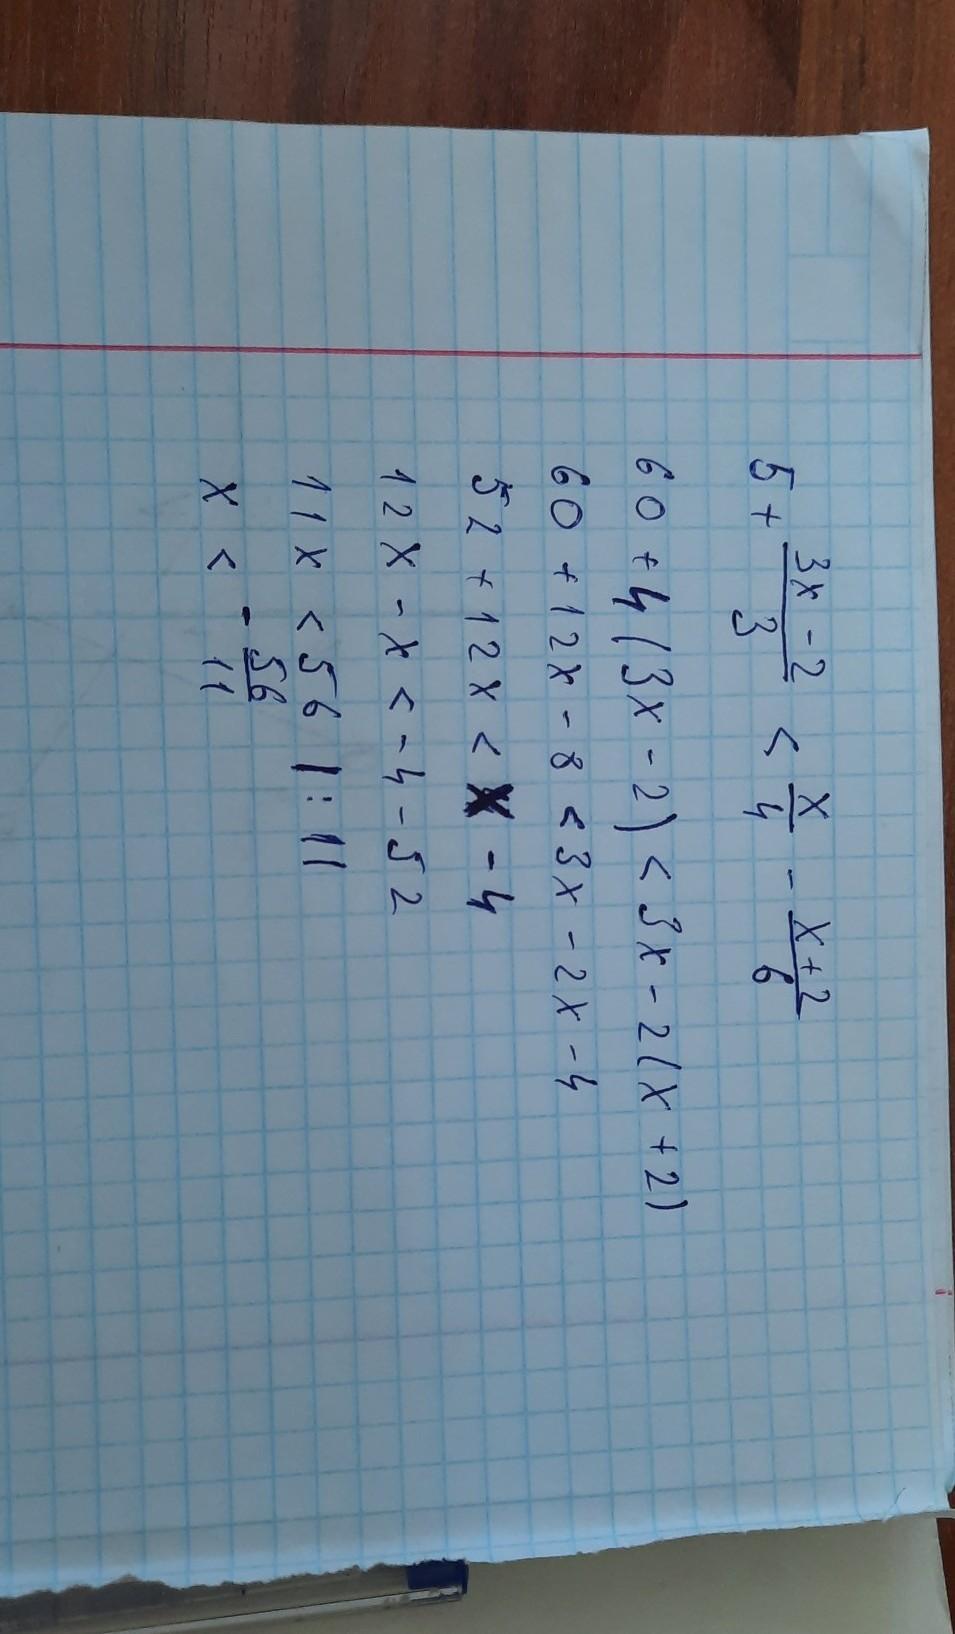 5 + \frac{3x - 2}{3} < \frac{x}{4} - \frac{x + 2}{6}
60 + 4(3x - 2) < 3x - 2(x + 2)
60 + 12x - 8 < 3x - 2x - 4
52 + 12x < x - 4
12x - x < -4 - 52
11x < 56 | : 11
x < - \frac{56}{11}